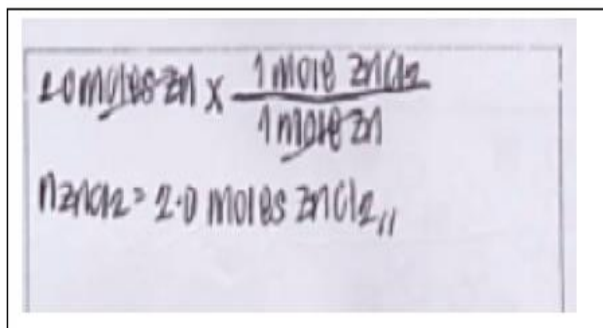 2.0 moles Zn x 1 mole ZnCl2
1 mole Zn
nZnCl2 = 2.0 moles ZnCl2,,